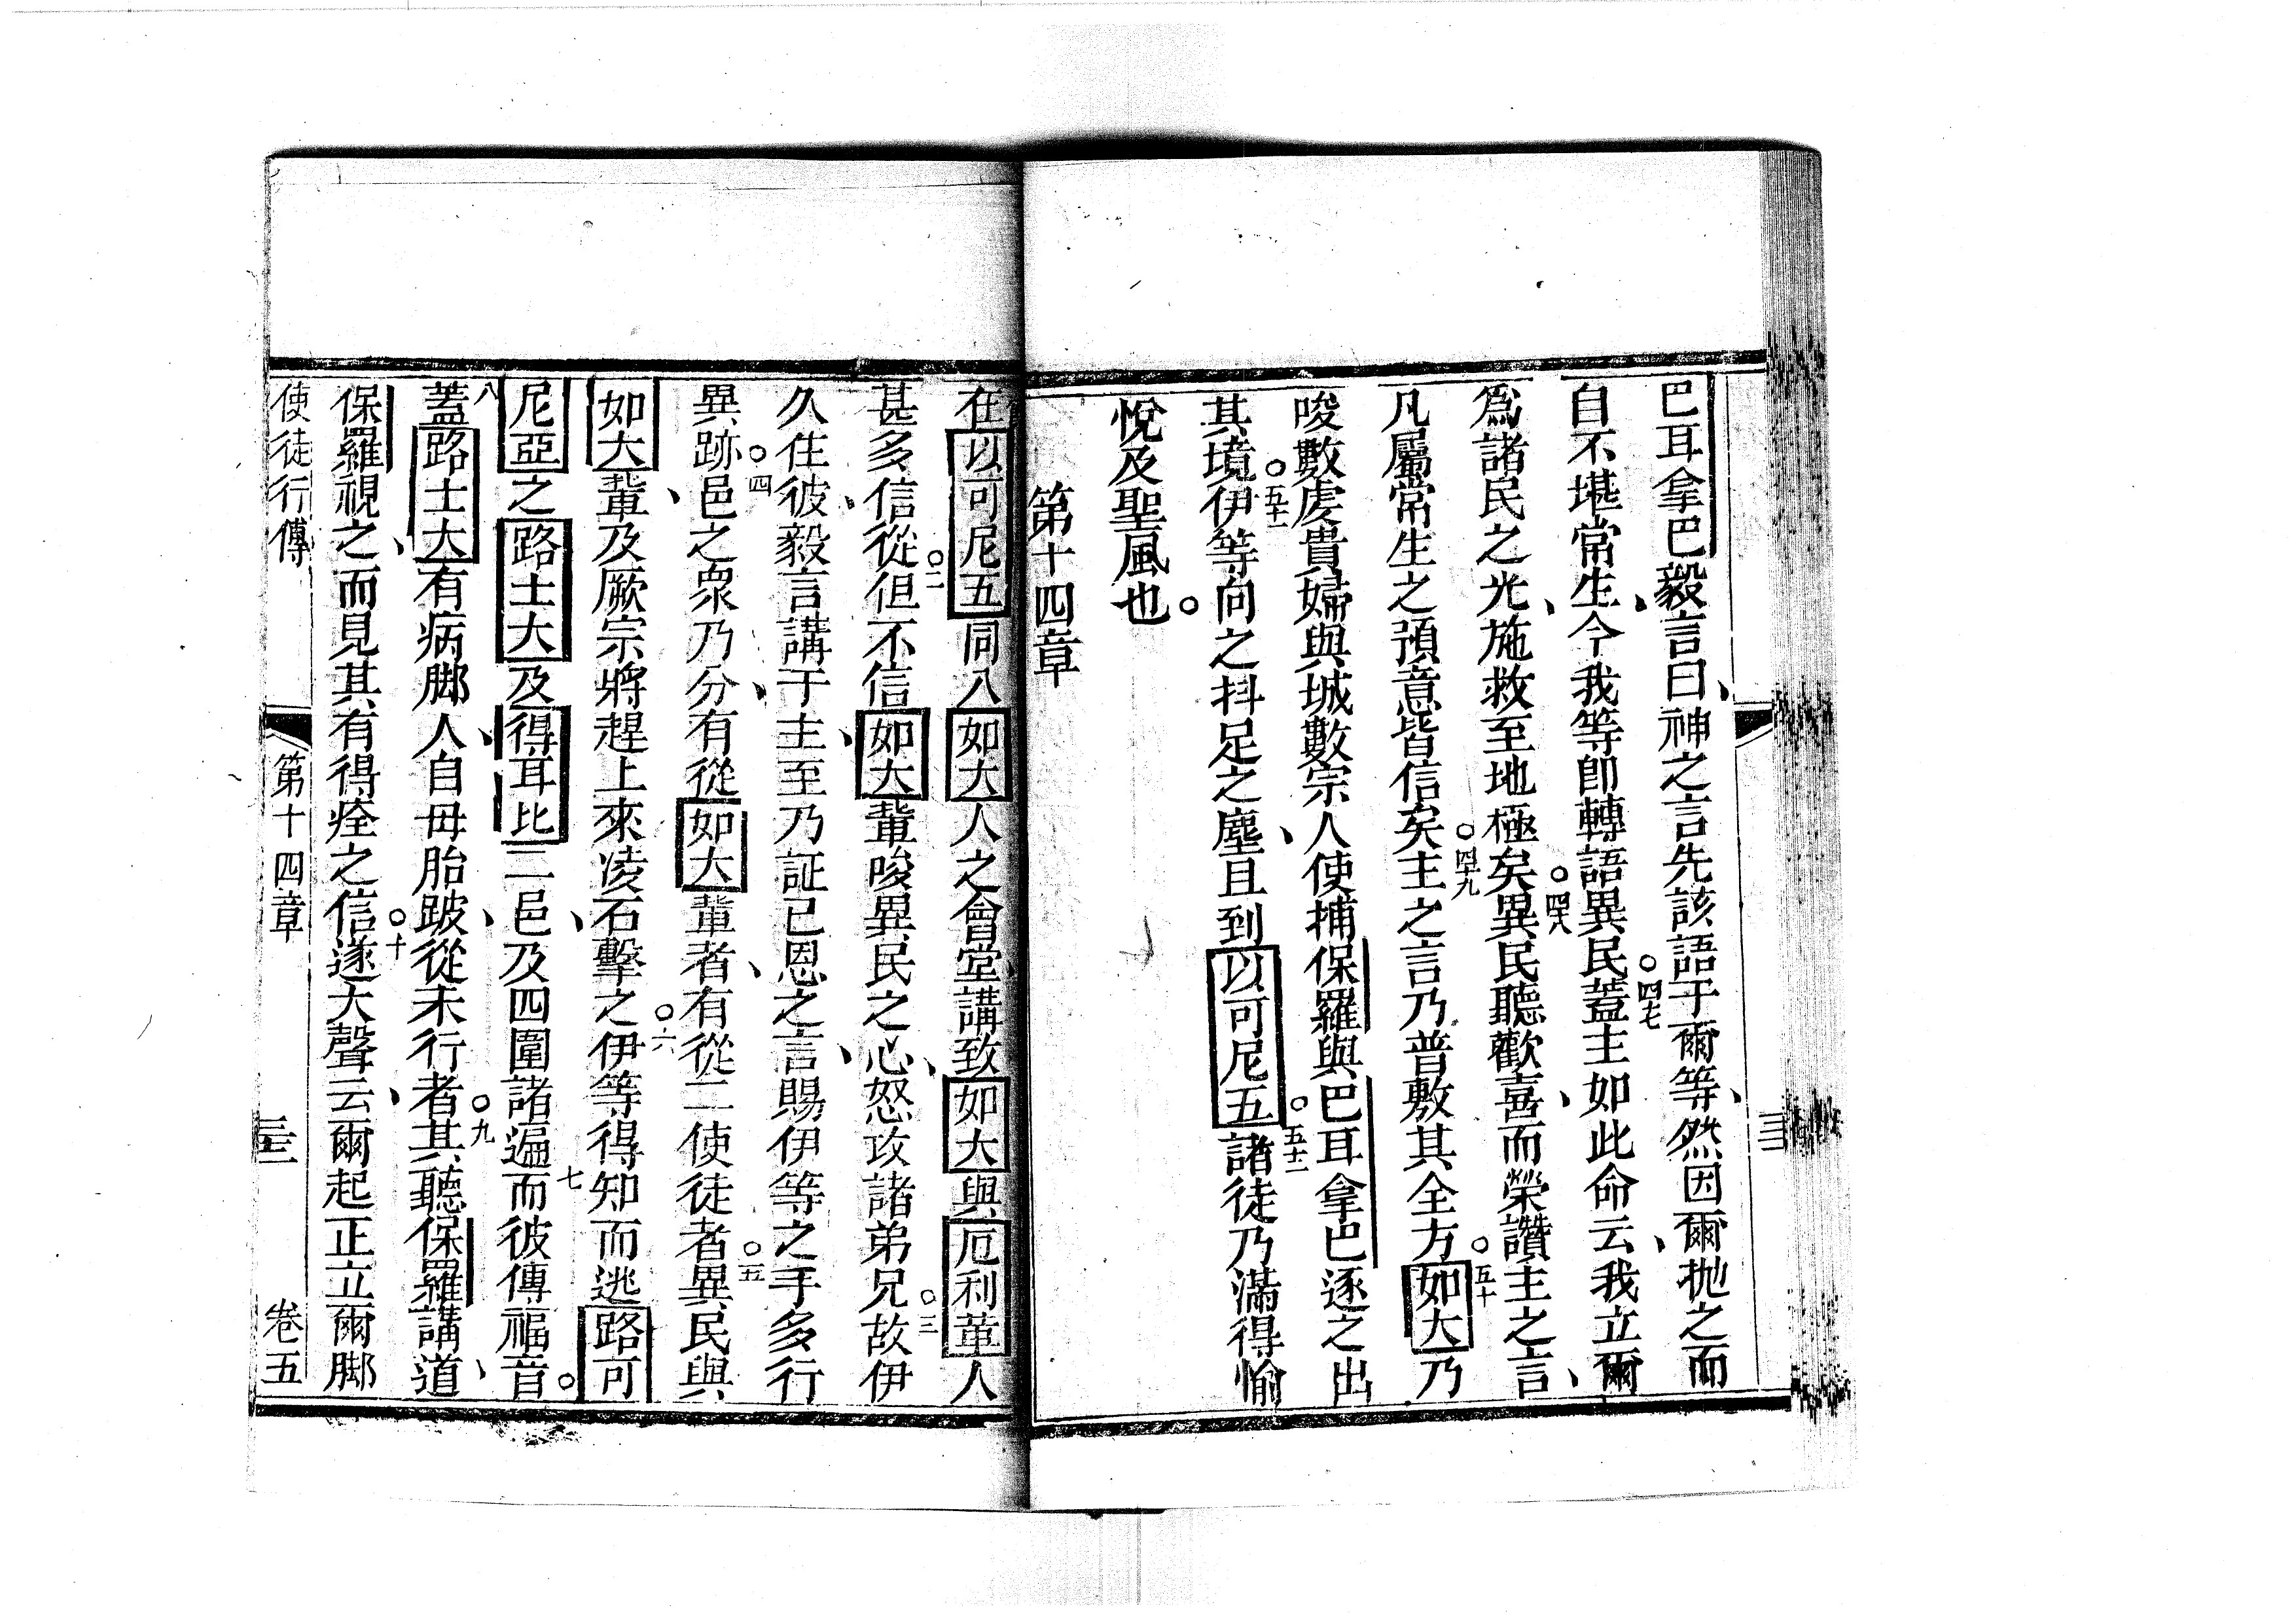 巴耳拿巴毅言曰、神之言先該語于爾等、然因爾抛之而
自不堪常生、今我等卽轉語異民○四七蓋主如此命云、我立爾
爲諸民之光、施救至地極矣○四八異民聽歡喜、而榮讚主之言、
凡屬常生之預意皆信矣○四九主之言乃普敷其全方○五十如大乃
唆數處貴婦與城數宗人使捕保羅與巴耳拿巴逐之出
其境○五十一伊等向之抖足之塵、且到以可尼五○五十二諸徒乃滿得愉
悅及聖風也○
第十四章
在以可尼五同入如大人之會堂、講致如大與厄利革人
甚多信從○二但不信如大輩唆異民之心、怒攻諸弟兄○三故伊
久住彼、毅言講于主、至乃証已恩之言、賜伊等之手多行
異跡○四邑之眾乃分、有從如大輩者、有從二使徒者○五異民與
如大輩、及厥宗將趕上來凌石擊之○六伊等得知而逃路可
尼亞之路士大及得耳比二邑、及四圍諸遍七而彼傳福音○
八蓋路士大有病脚人、自母胎跛、從未行者○九其聽保羅講道、
保羅視之、而見其有得痊之信○十遂大聲云、爾起正立爾脚
使徒行傳
第十四章
卷五